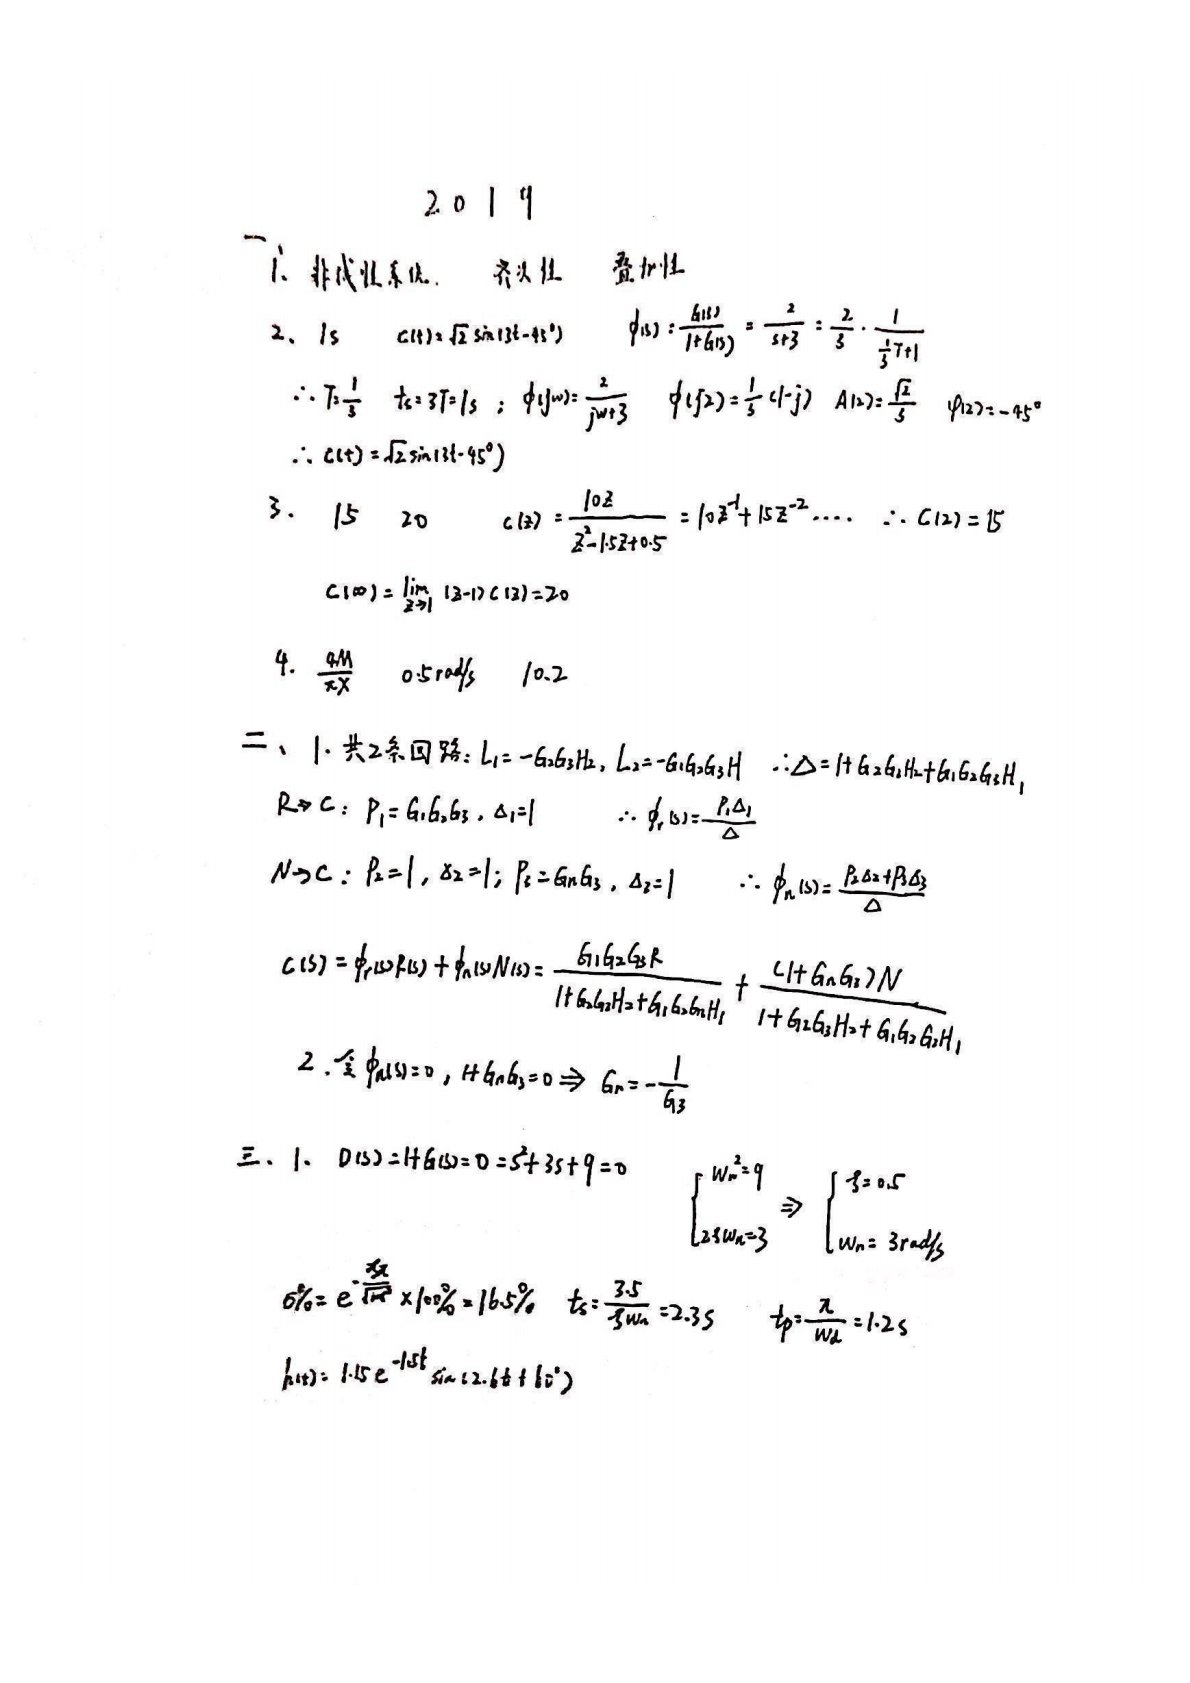 2019
一、
1. 非线性系统. 齐次性 叠加性
2、 1s c(t)=√2 sin(3t-45°) ϕ(s)=G(s)/(1+G(s)) = 2/(s+3) = 2/3 · 1/(1/3 T+1)
∴ T=1/3 ts=3T=1s ; ϕ(jw)=2/(jw+3) ϕ(j2)=1/3 (1-j) A(2)=√2/3 φ(2)=-45°
∴ c(t)=√2 sin(3t-45°)
3. 15 20 c(z) = 10z/(z²-1.5z+0.5) = 10z⁻¹+15z⁻².... ∴ C(2)=15
c(∞)= lim z→1 (z-1)C(z)=20
4. 4M/πX 0.5rad/s 10.2
二、 1. 共2条回路: L₁=-G₂G₃H₂, L₂=-G₁G₂G₃H ∴Δ=1+G₂G₃H₂+G₁G₂G₃H₁
R→C: P₁=G₁G₂G₃, Δ₁=1 ∴ ϕr(s)=P₁Δ₁/Δ
N→C: P₂=1, Δ₂=1; P₃=GnG₃, Δ₃=1 ∴ ϕn(s)=(P₂Δ₂+P₃Δ₃)/Δ
C(s)=ϕr(s)R(s)+ϕn(s)N(s)= G₁G₂G₃R/(1+G₂G₃H₂+G₁G₂G₃H₁) + (1+GnG₃)N/(1+G₂G₃H₂+G₁G₂G₃H₁)
2. 令ϕn(s)=0, 1+GnG₃=0 ⇒ Gn=-1/G₃
三、1. D(s)=1+G(s)=0=s²+3s+9=0 { wn²=9 2ξwn=3 ⇒ { ξ=0.5 wn=3rad/s
σ%=e^(-ξπ/√(1-ξ²))×100%=16.5% ts=3.5/ξwn=2.3s tp=π/wd=1.2s
h(t)=1.15e^(-1.5t) sin(2.6t+60°)